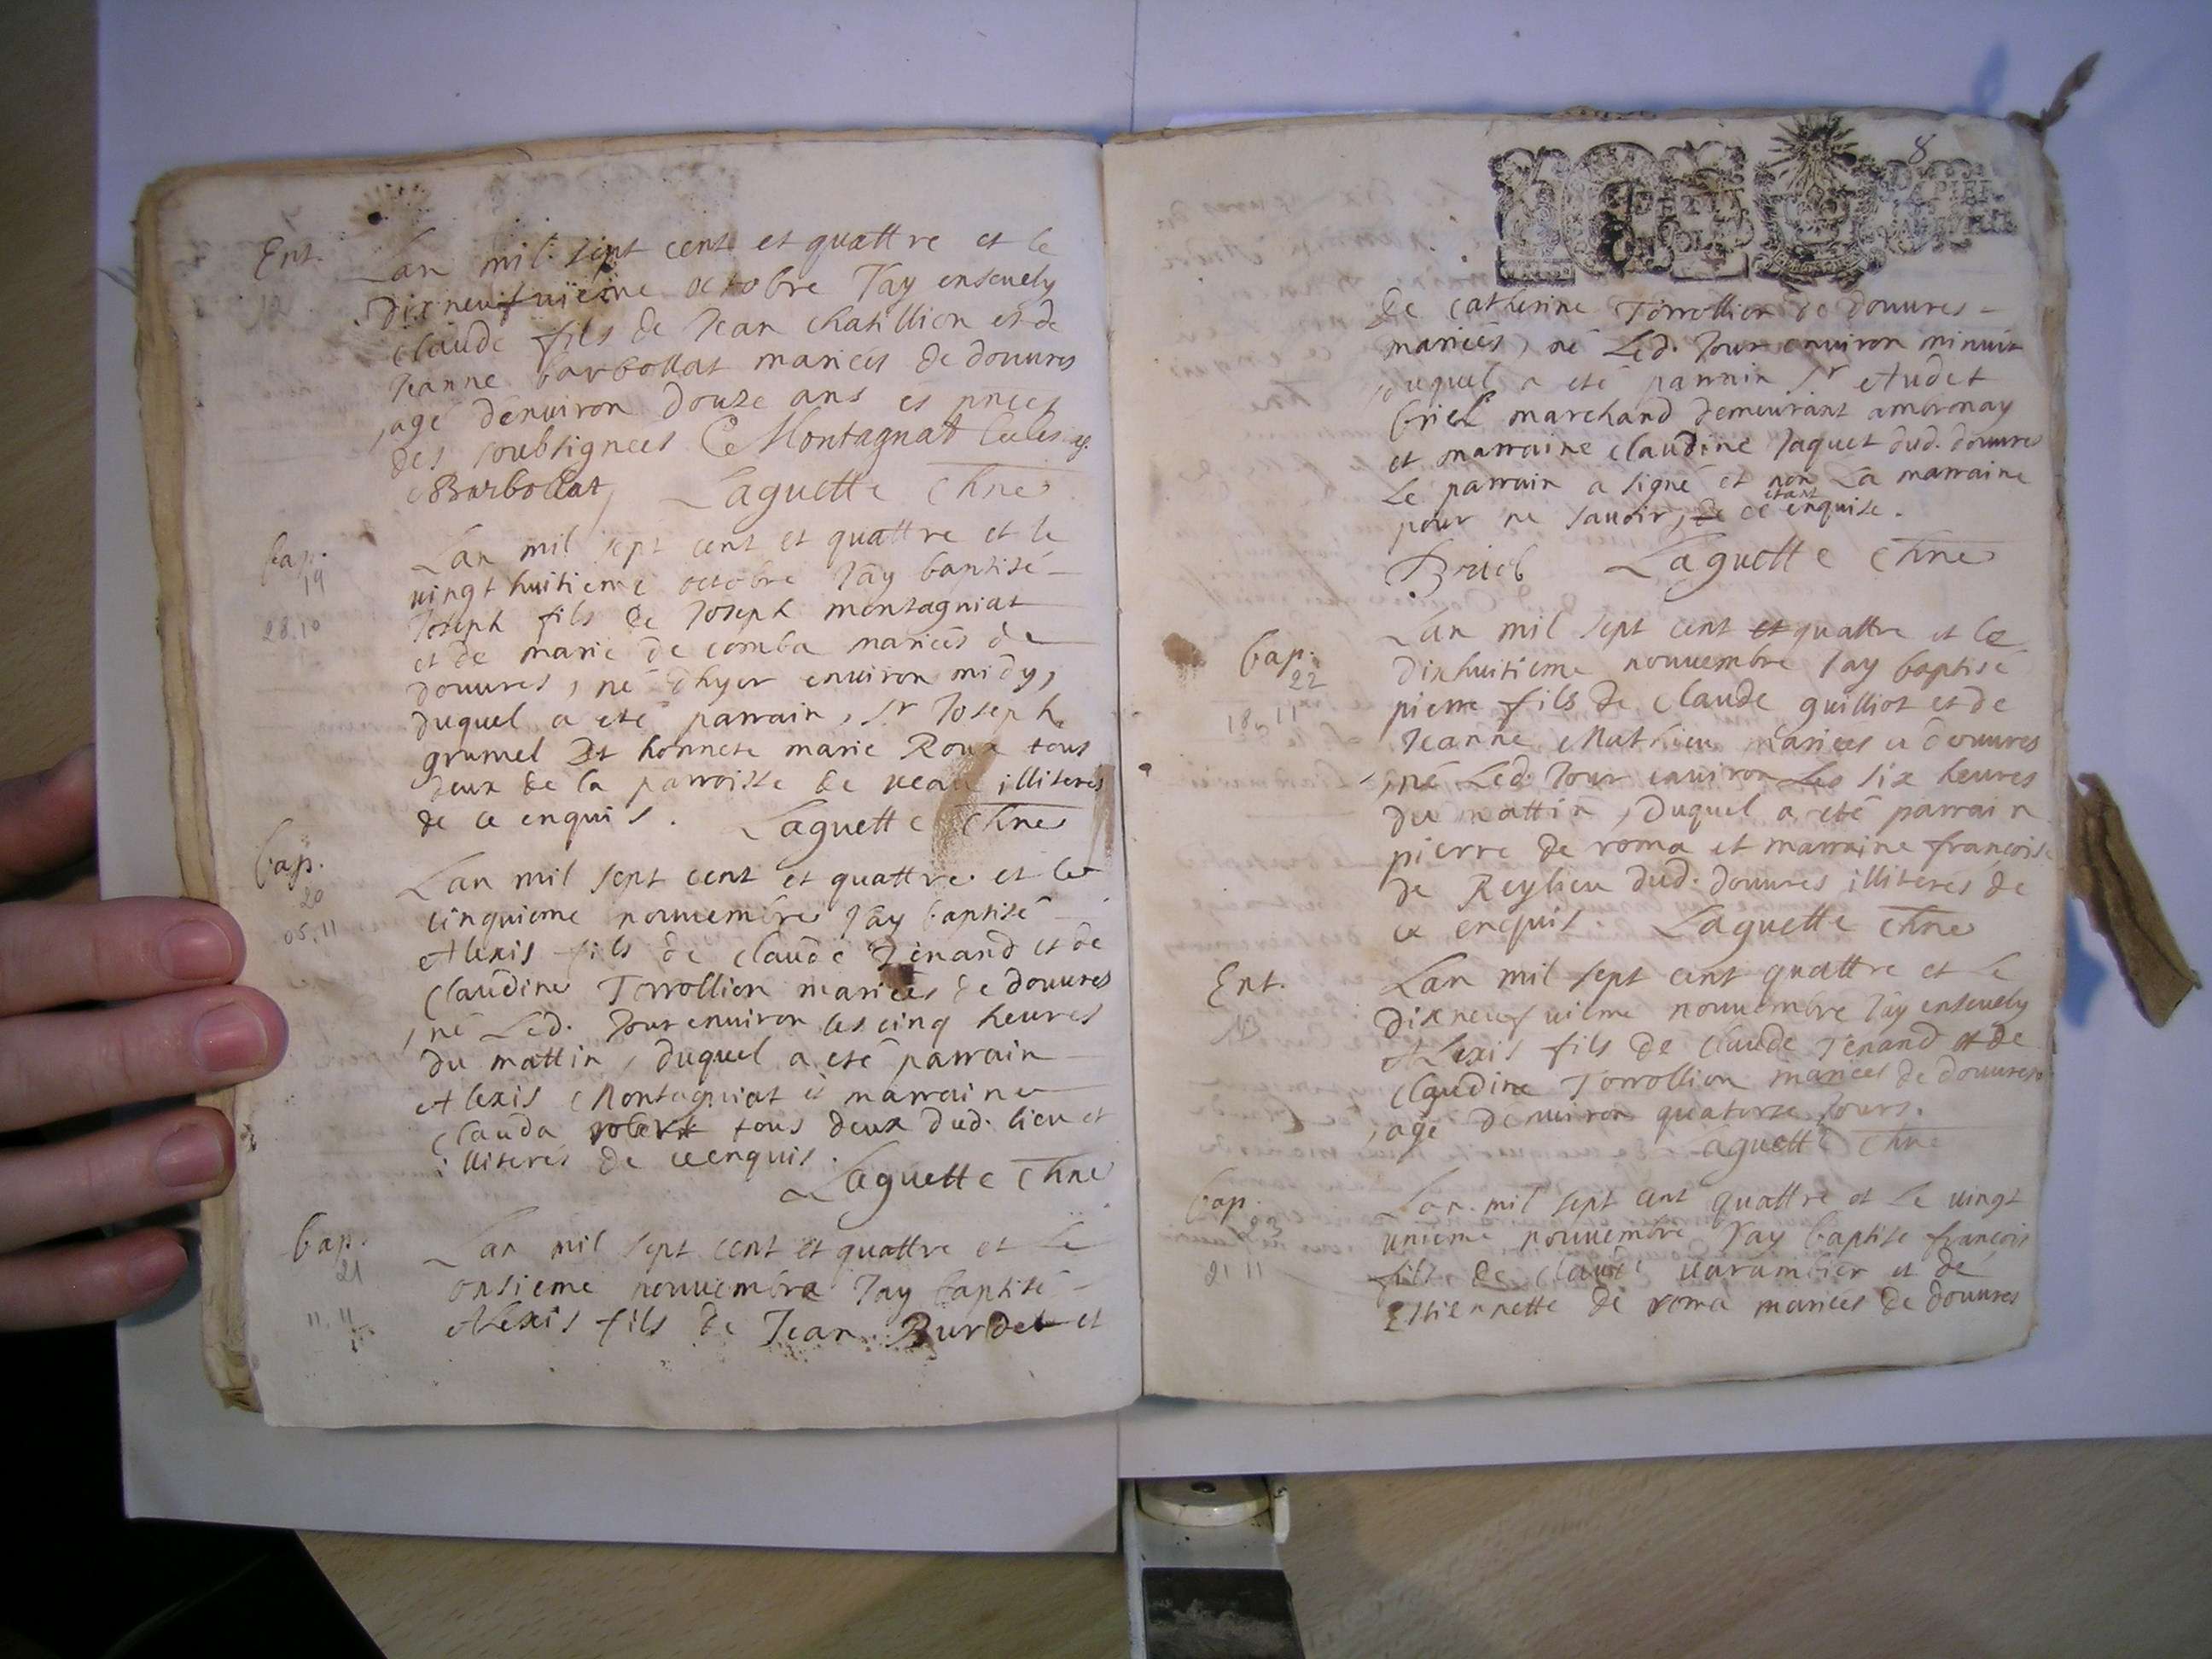 Ent.
12
Lan mil sept cent et quattre et le
dixneufuieme octobre Jay enseuely
claude fils de Jean chatillion et de
Jeanne barbollat mariées de douures
,agé dénuiron douze ans es pnces
des soubsignees C Montagnat
Barbollat Laguette Chne
bap.
19
28.10
Lan mil sept cent et quattre et le
uingt huitieme octobre Jay baptisé
Joseph fils de Joseph montagniat
et de marie de comba mariés de
douures, né dhyer enuiron midy,
duquel a eté parrain, Sr Joseph
grumel Et honnete marie Roux tous
deux de la parroisse de ueau illiteres
de ce enquis. Laguette Chne
bap.
20
05.11
Lan mil sept cent et quattre et le
cinquieme nouuembre Jay baptisé
Alexis fils de claude Tenand et de
claudine Torrollion mariées de douures
, né Led. Jour enuiron les cinq heures
du mattin, duquel a eté parrain
Alexis Montagniat et marraine
clauda robert tous deux dud. lieu et
illiteres de ce enquis.
Laguette Chne
bap.
21
11.11
Lan mil sept cent et quattre et le
onsieme nouuembre Jay baptisé
Alexis fils de Jean Burdet et
8
PAPIER
de catherine Torrollion de douures
mariées, né Led. Jour enuiron minuit
duquel a eté parrain Sr Audet
briel marchand demeurant ambronay
et marraine claudine Jaquet dud. douures
Le parrain a signé et non La marraine
pour ne sauoir, de ce étant enquise.
Briel Laguette Chne
bap.
22
18.11
Lan mil sept cent et quattre et le
dixhuitieme nouuembre Jay baptisé
pierre fils de claude guilliot et de
Jeanne Mathieu mariées a douures
, né Led. Jour enuiron Les six heures
du mattin, duquel a eté parrain
pierre de roma et marraine francoise
de Reylieu dud. douures illiteres de
ce enquis. Laguette Chne
Ent.
13
Lan mil sept cent quattre et le
dixneufuieme nouuembre Jay enseuely
Alexis fils de claude Tenand et de
claudine Torrollion mariées de douures
, agé denuiron quatorze Jours.
Laguette Chne
bap.
23
21 11
Lan mil sept cent quattre et Le uingt
unieme nouuembre Jay baptise francois
fils de claude uarambier et de
Estiennette de roma mariées de douures